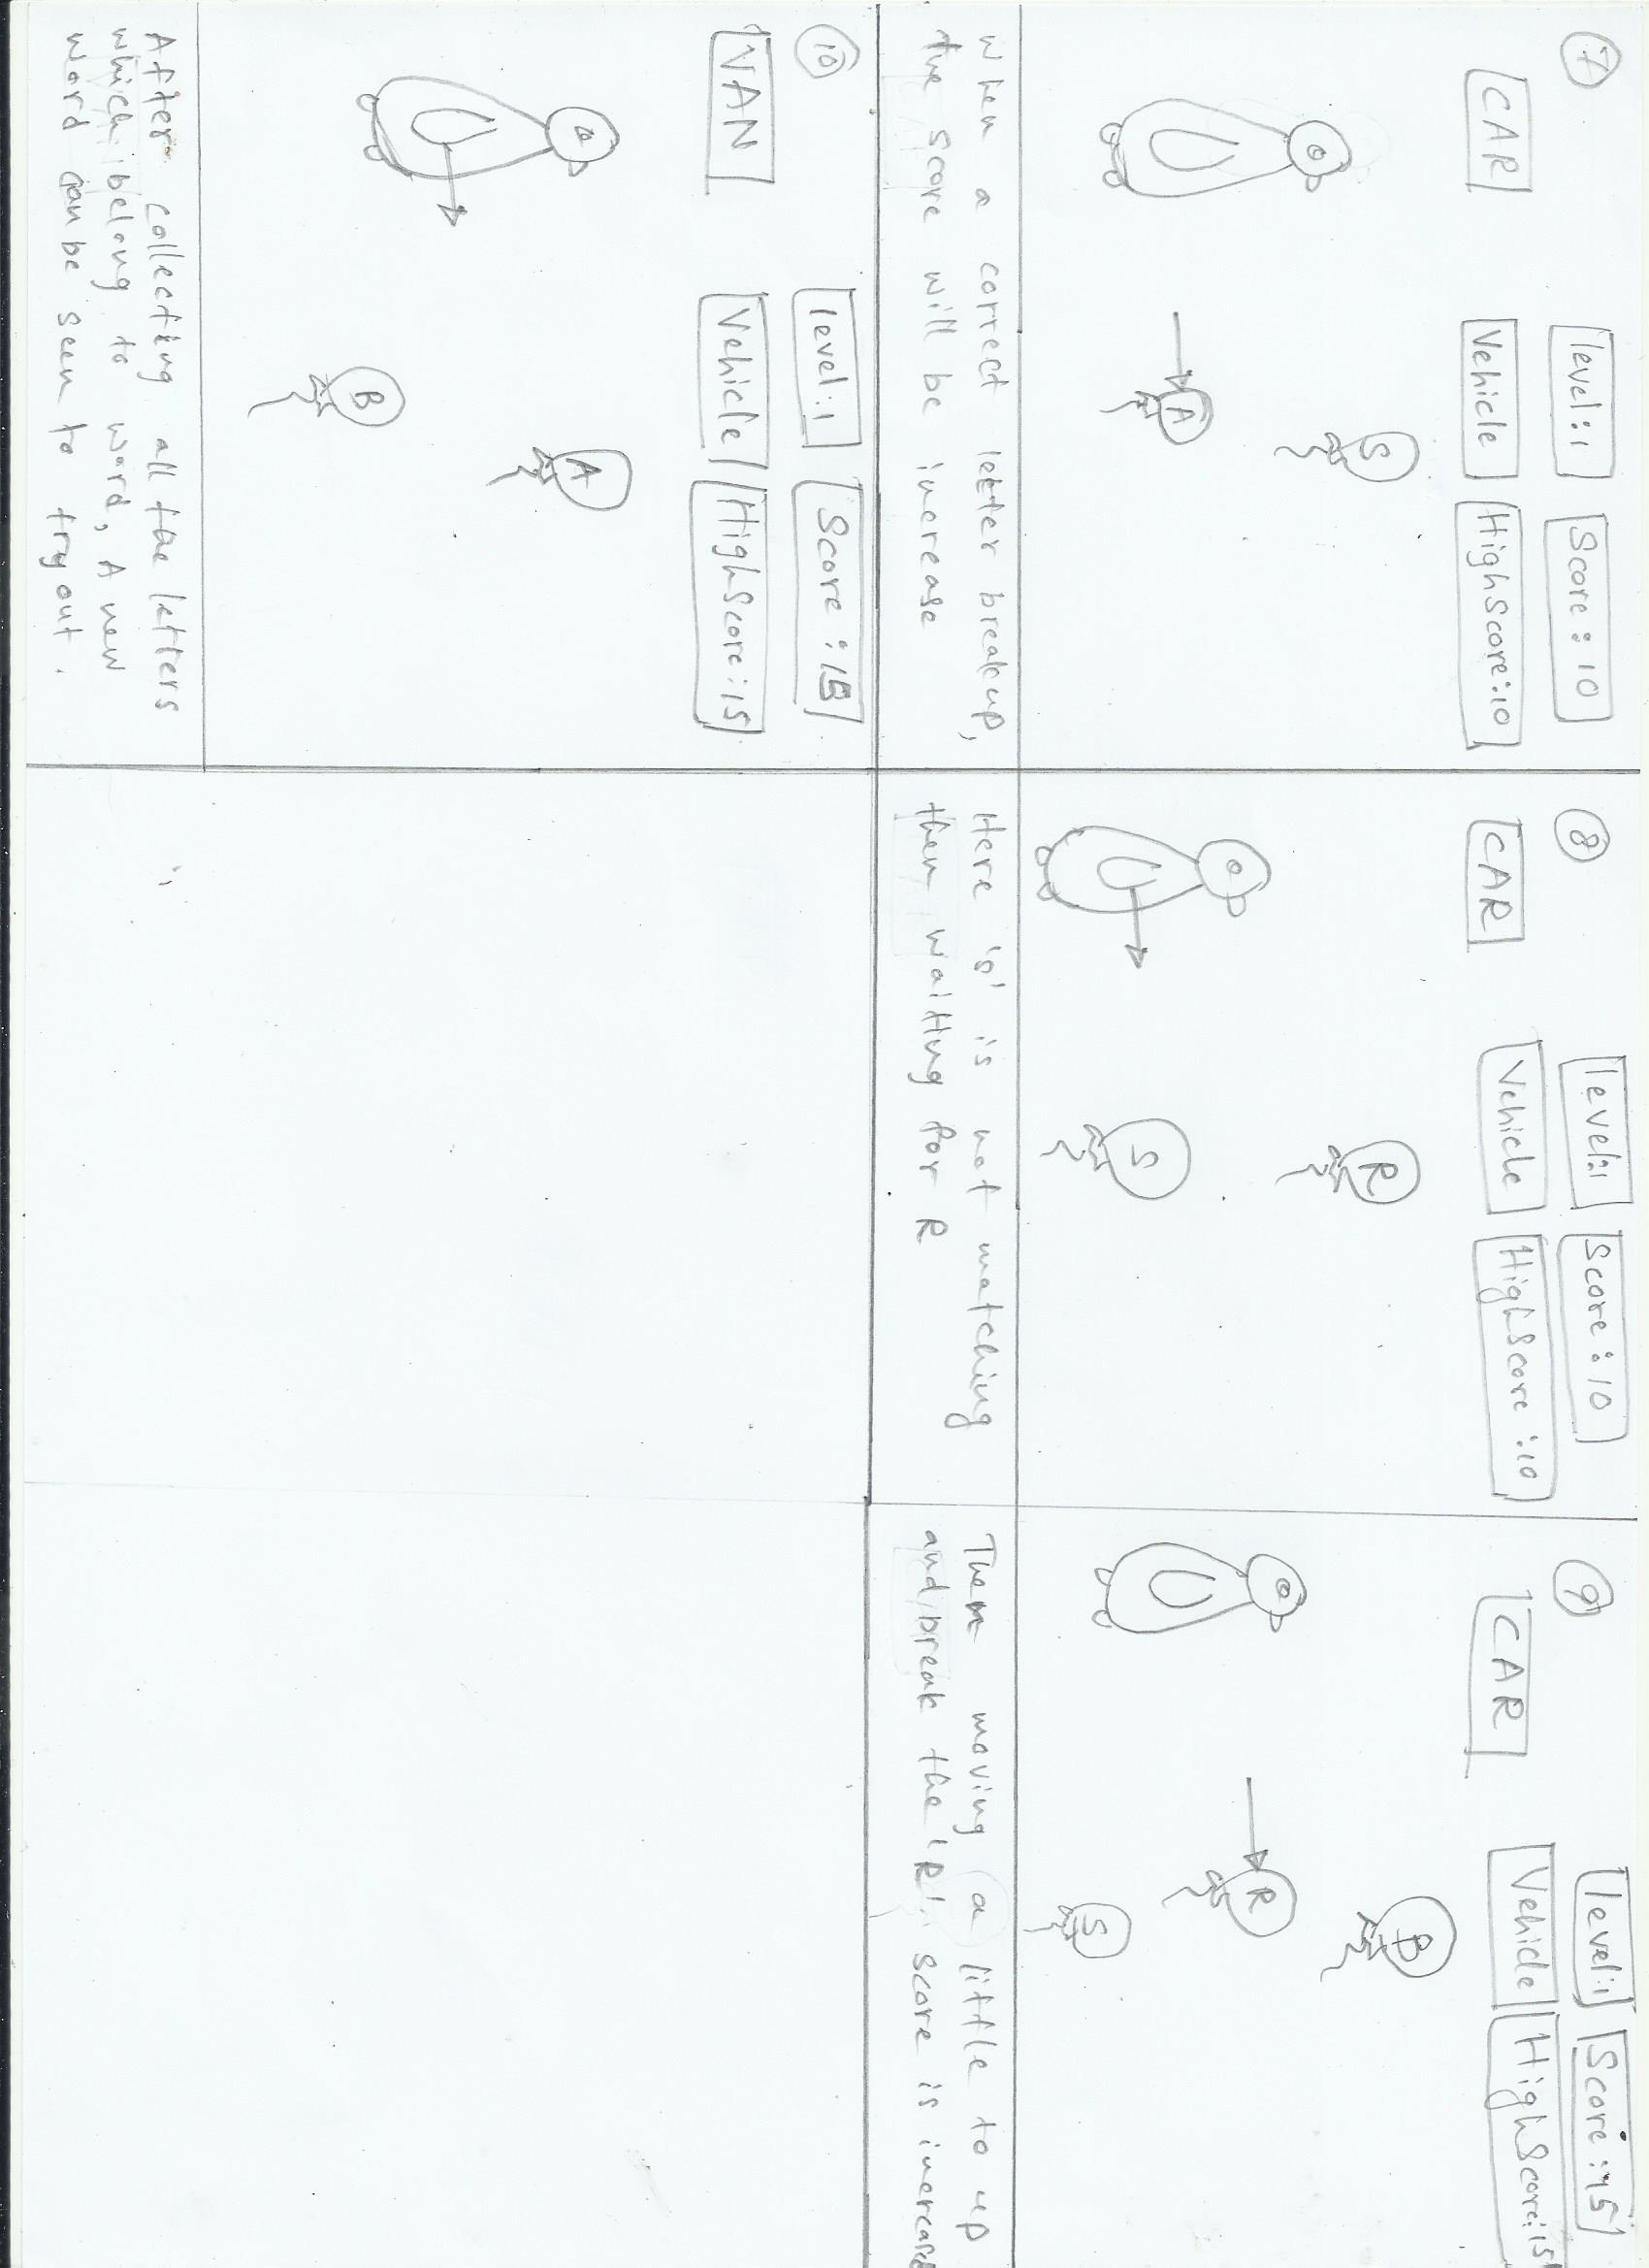 7
level:1 Score:10
CAR Vehicle HighScore:10
S
A
When a correct letter breakup,
the score will be increase
8
level:1 Score:10
CAR Vehicle HighScore:10
R
S
Here 's' is not matching
then waiting for R
9
level:1 Score:15
CAR Vehicle HighScore:15
B
R
S
Then moving a little to up
and break the 'R'. score is increase
10
level:1 Score:15
VAN Vehicle HighScore:15
A
B
After collecting all the letters
which belong to word, A new
word can be seen to try out.